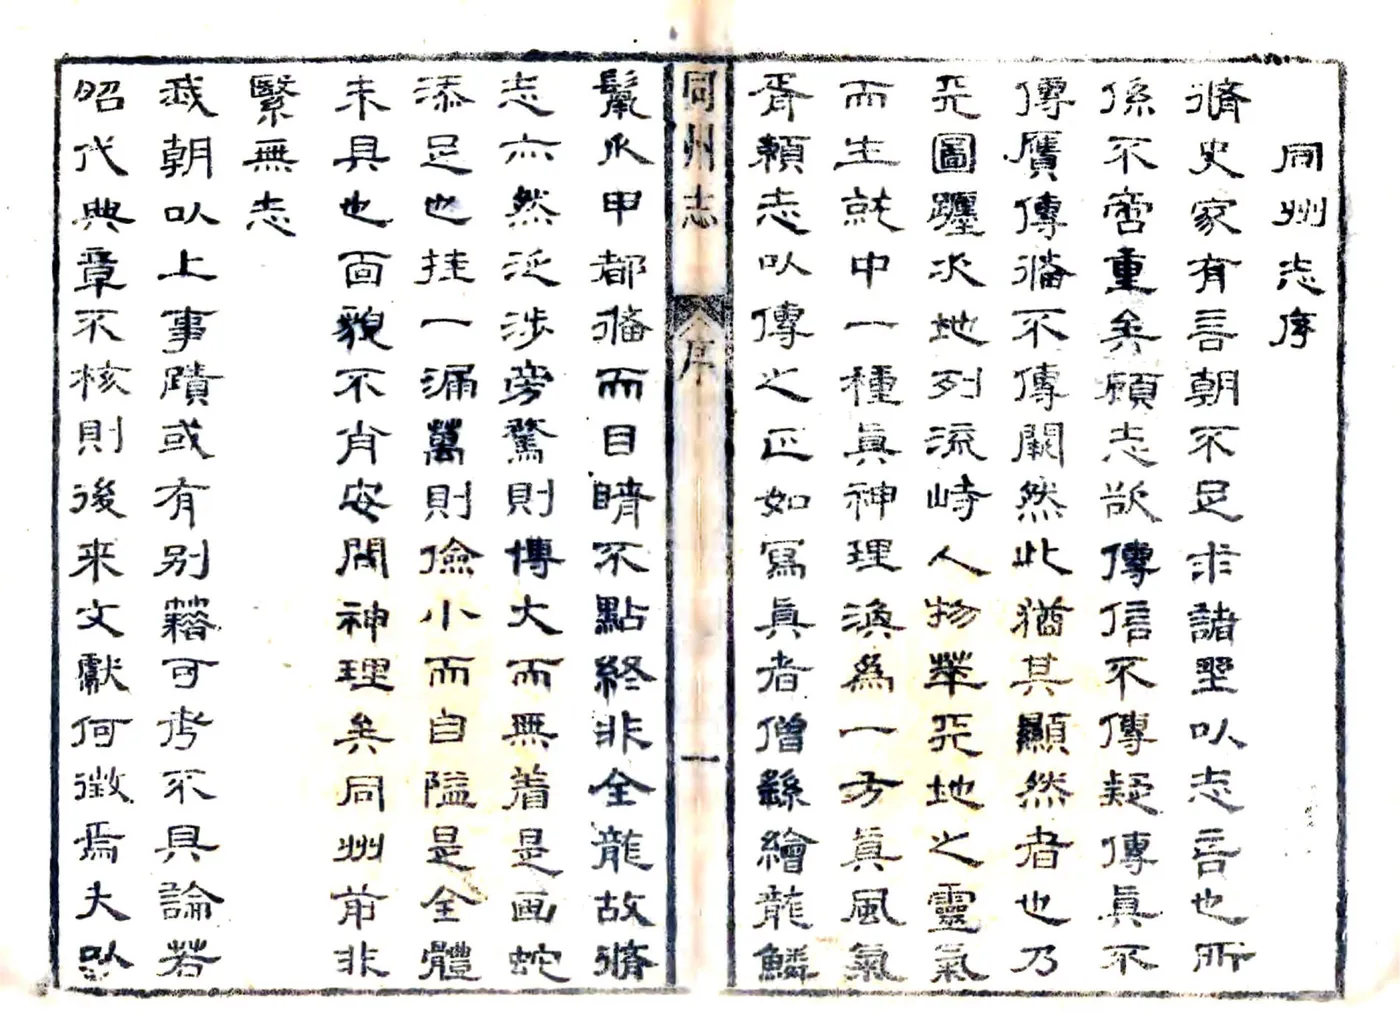 同州志序
脩史家有言朝不足求諸埜以志言也所
係不啻重矣顧志欲傳信不傳疑傳眞不
傳贋傳備不傳闕然此猶其顯然者也乃
天圖躔次地列流峙人物萃天地之靈氣
而生就中一種眞神理渙爲一方眞風氣
胥賴志以傳之正如寫眞者僧繇繪龍鱗
同州志 序 一
鬣爪甲都備而目睛不點終非全龍故脩
志亦然泛涉旁騖則博大而無着是画蛇
添足也挂一漏萬則儉小而自隘是全體
未具也面貌不肖安問神理矣同州前非
繄無志
我朝以上事蹟或有别籍可考不具論若
昭代典章不核則後来文獻何徵焉夫以